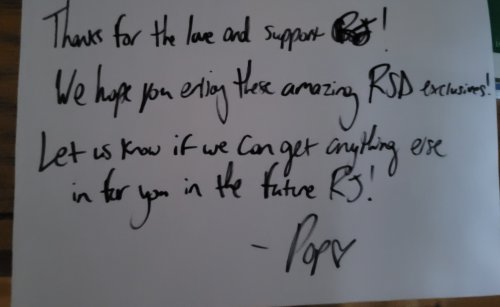 Thanks for the love and support RJ!
We hope you enjoy these amazing RSD exclusives!
Let us know if we can get anything else
in for you in the future RJ!
- Pop♡